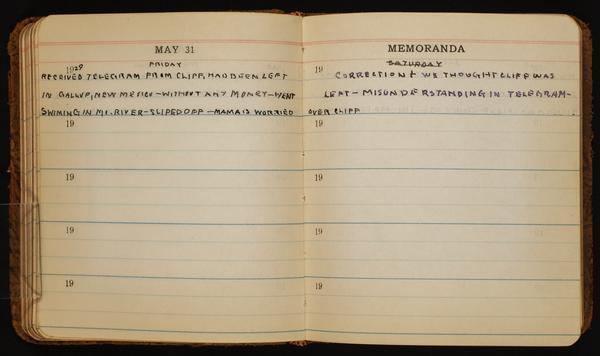 MAY 31
FRIDAY
1929
RECEIVED TELEGRAM FROM CLIFF, HAD BEEN LEFT
IN GALLUP, NEW MEXICO - WITHOUT ANY MONEY - WENT
SWIMING IN MI. RIVER - SLIPED OFF - MAMA IS WORRIED
19
19
19
19
MEMORANDA
SATURDAY
19
CORRECTION + WE THOUGHT CLIFF WAS
LEFT - MISUNDERSTANDING IN TELEGRAM -
OVER CLIFF
19
19
19
19